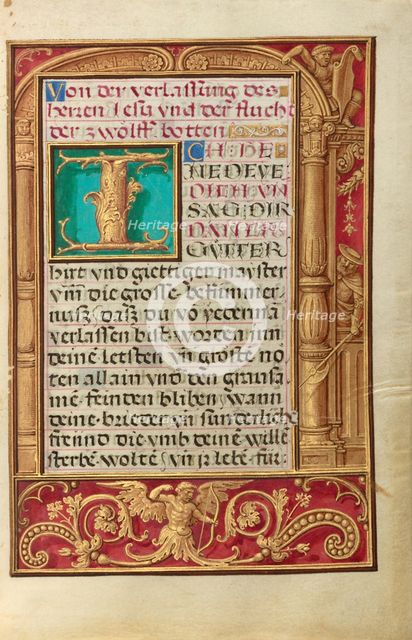 Von der verlassung des
herren Iesu vnd der flucht
der zwölff botten
I CH: DE
NEDEVE
DICH VN
SAG DIR
DANCK
GŮTTER
hirt vnd giettiger mayster
vm̄ die grosse bekümmer
nusz dasz du vō yedermā
verlassen bist worden inn
deine letsten vn̄ groste no
ten allain vnd den grausa
mē feinden bliben wann
deine brieder vn̄ sunderliche
freund die vmb deine wille
sterbē woltē vn̄ ir lebē für
Heritage
Heritage
Heritage